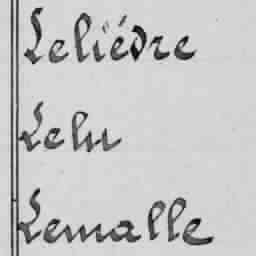 Leliévre
Lelu
Lemalle